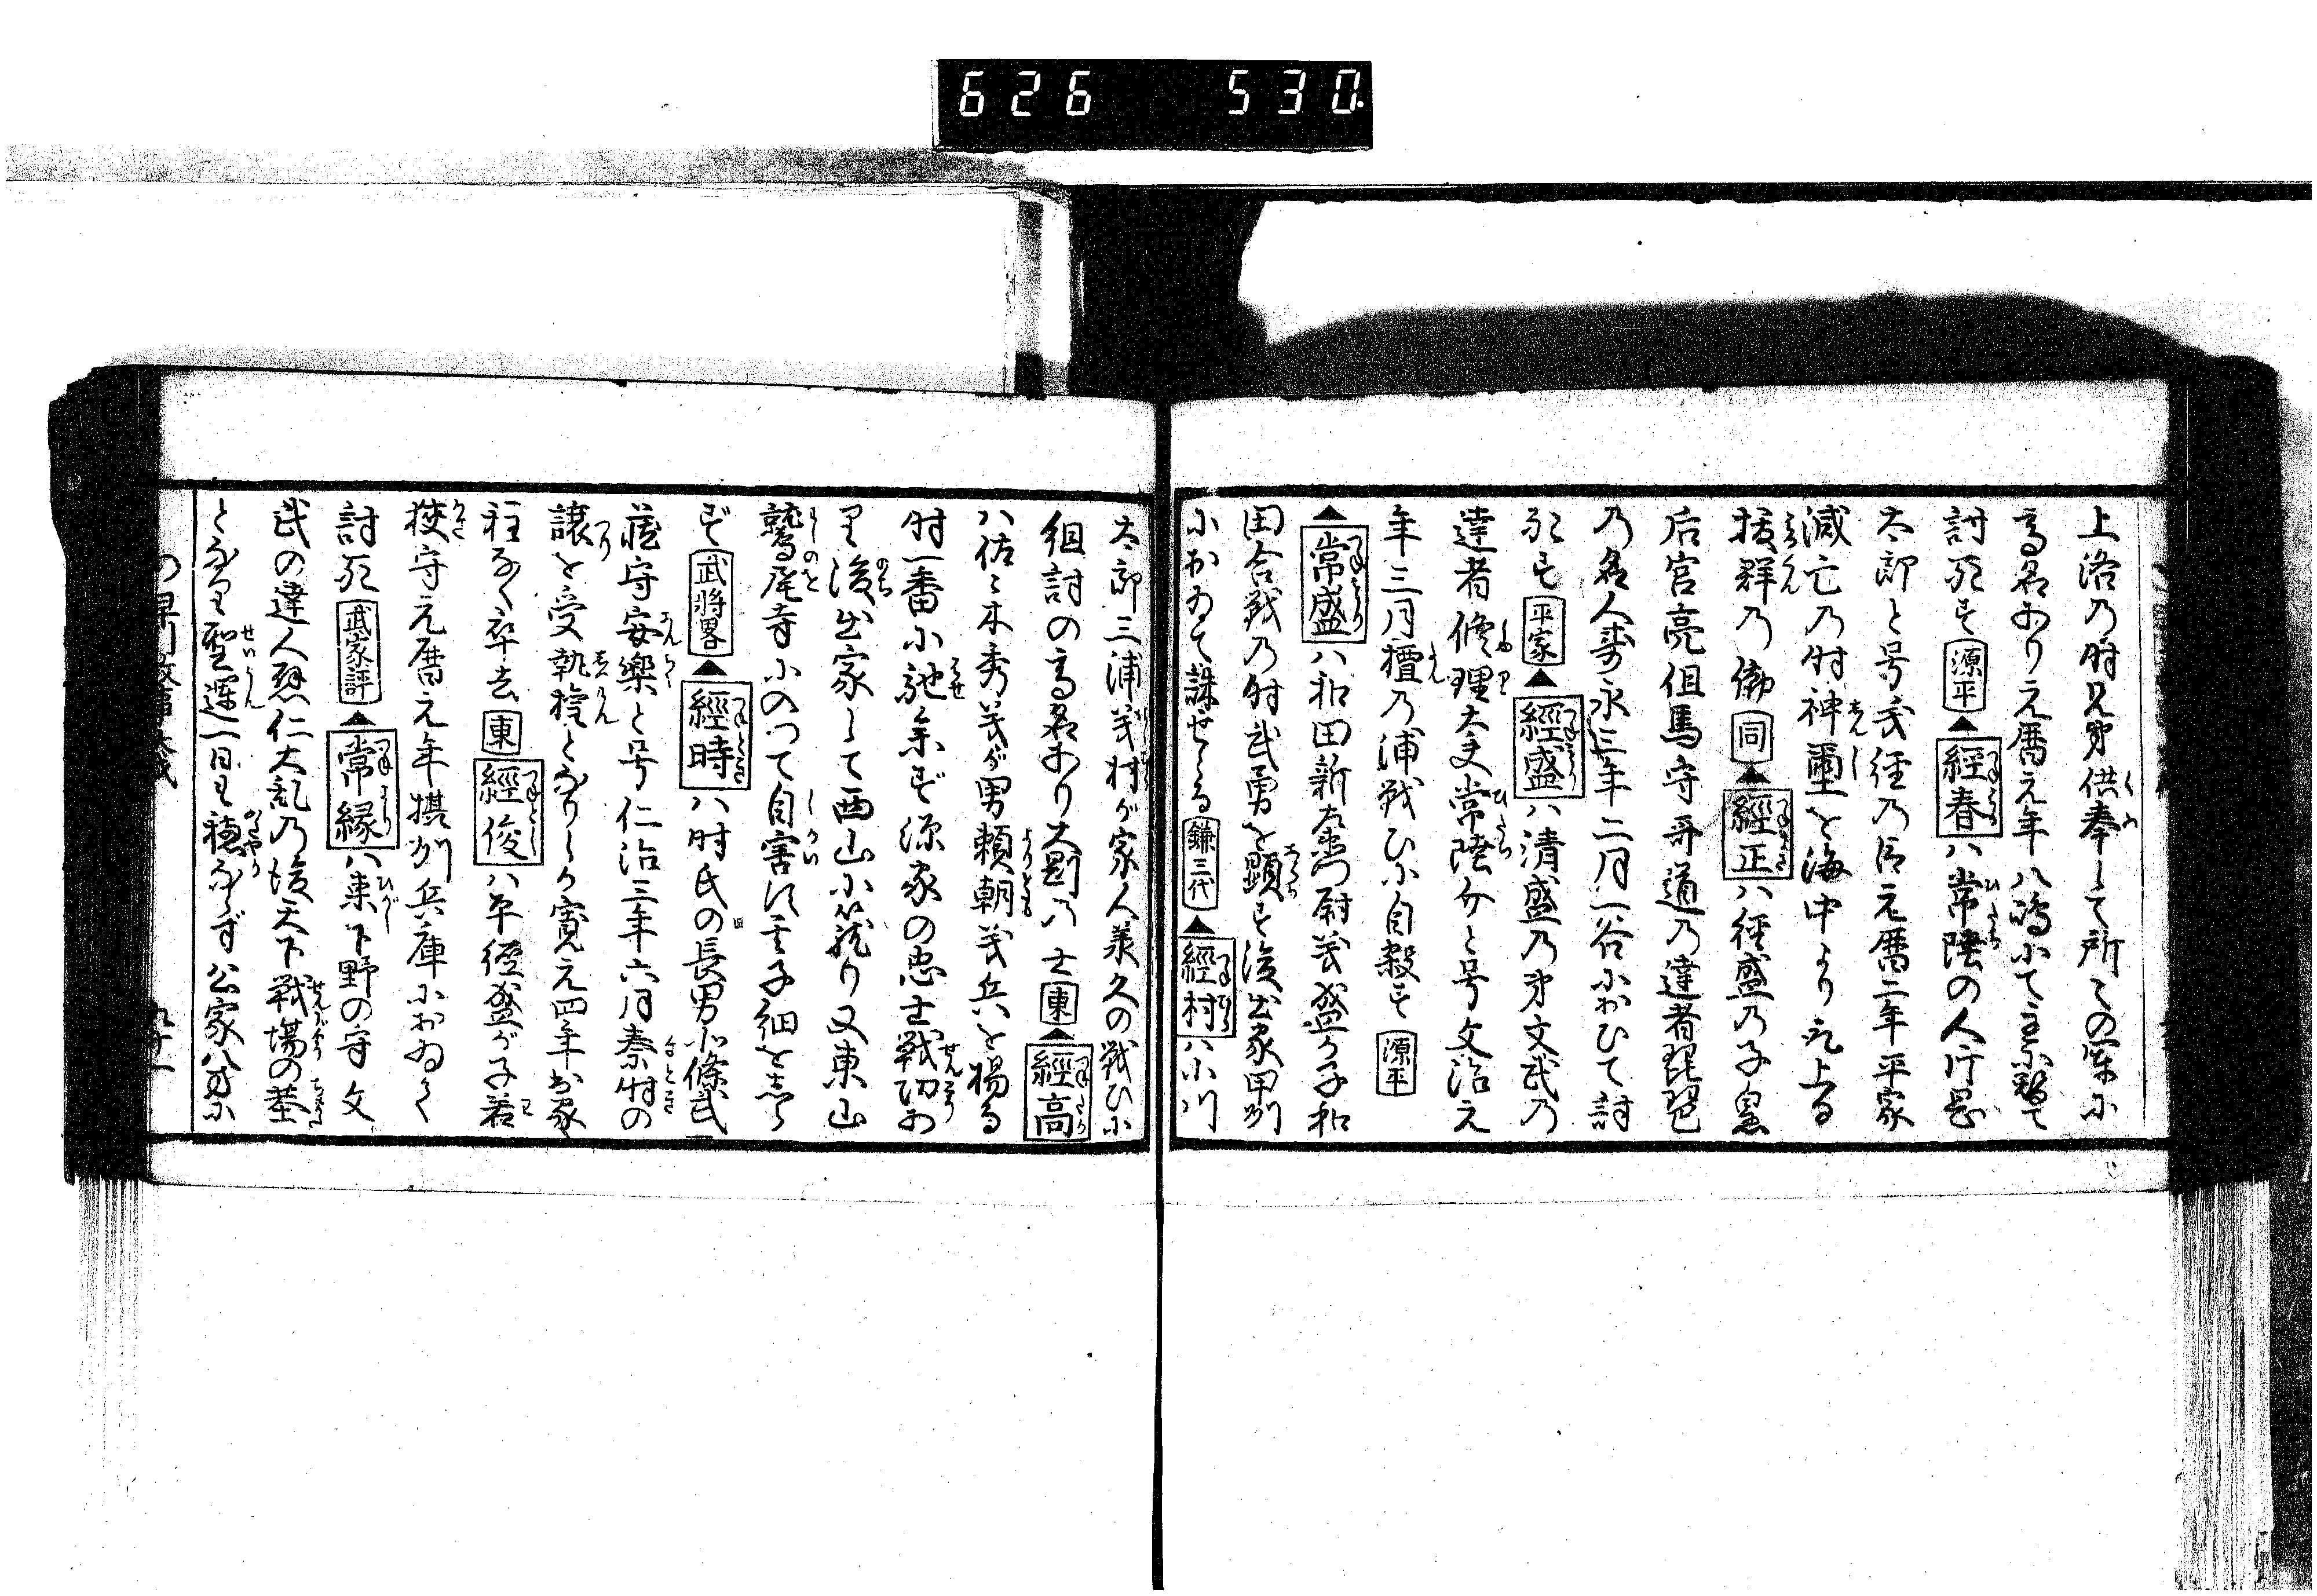 626 530
上洛乃時兄弟供奉して所々の軍に
高名あり元暦元年八嶋にて主に替て
討死す 源平 ▲經春ハ常陸の人片岡
太郎と号義経乃臣元暦二年平家
滅亡乃時神璽を海中より取上る
抜群乃働 同 ▲經正ハ経盛乃子皇
后宮亮但馬守哥道乃達者琵琶
乃名人寿永三年二月一谷におひて討
死す 平家 ▲經盛ハ清盛乃弟文武乃
達者修理太夫常陸介と号文治元
年三月檀乃浦戦ひに自殺す 源平
▲常盛ハ和田新左衛門尉義盛が子和
田合戦乃時武勇を顕す後出家甲州
におゐて誅せらる 鎌三代 ▲經村ハ小川
太郎三浦義村が家人承久の戦ひに
組討の高名あり大剛乃士 東 ▲經高
ハ佐々木秀義が男頼朝義兵を揚る
時一番に馳参ず源家の忠士戦功あ
り後出家して西山に篭り又東山
鷲尾寺にのつて自害に云子細を志ら
ず 武將畧 ▲經時ハ時氏の長男北條武
蔵守安楽と号仁治三年六月泰時の
譲を受執権となりしが寛元四年出家
程なく卒去 東 ▲經俊ハ平経盛が子若
狭守元暦元年摂州兵庫におゐて
討死 武家評 ▲常縁ハ東下野の守文
武の達人應仁大乱乃後天下戦場の巷
となり聖運一日も穏ならず公家ハ日々に